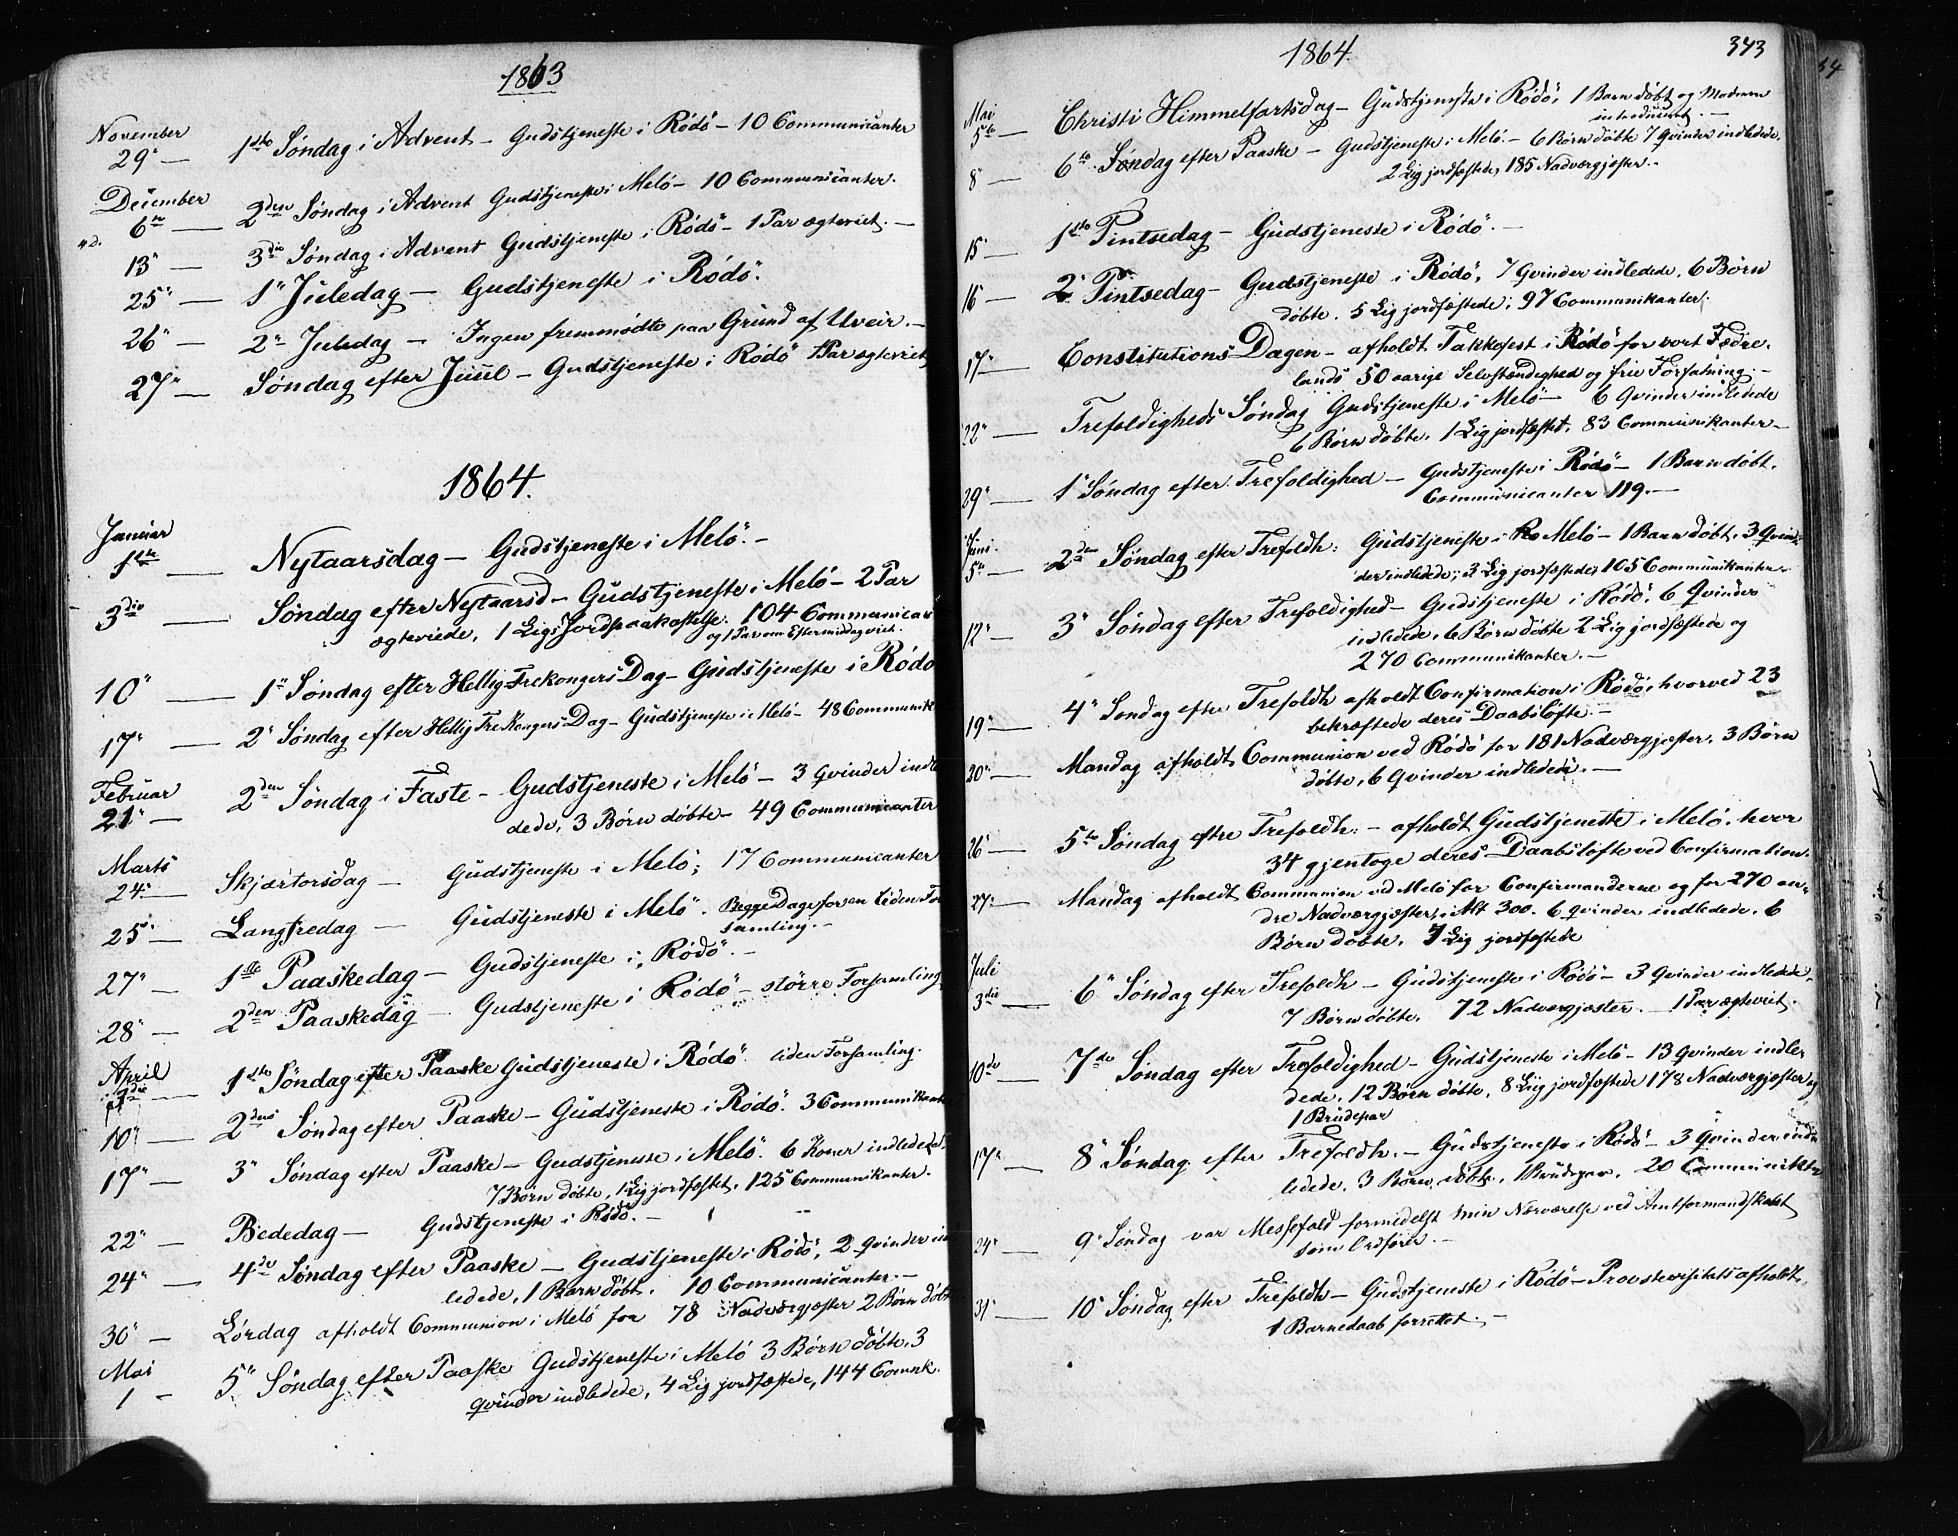 1863
November
29" — 1ste Søndag i Advent — Gudstjeneste i Rødø — 10 Communicanter
December
6te — 2den Søndag i Advent Gudstjeneste i Melø — 10 Communicanter.
13" — 3die Søndag i Advent Gudstjeneste i Rødø — 1 Par ægteviet. —
25" — 1" Juledag — Gudstjeneste i Rødø.
26" — 2" Juledag — Ingen fremmødte paa Grund af Uveir. —
27" — Søndag efter Juul — Gudstjeneste i Rødø 1 Par ægteviet
1864.
Januar
1ste — Nytaarsdag — Gudstjeneste i Melø. —
3die — Søndag efter Nytaarsd — Gudstjeneste i Melø — 2 Par
ægteviede, 1 Ligs Jordpaakastelse. 104 Communican
og 1 Par om Eftermiddag viet.
10" — 1" Søndag efter Hellig Trekongers Dag — Gudstjeneste i Rødø
17" — 2" Søndag efter Hellig Tre Kongers Dag — Gudstjeneste i Melø — 48 Communik
Februar
21" — 2den Søndag i Faste — Gudstjeneste i Melø — 3 Qvinder indle
dede, 3 Børn døbte — 49 Communicanter
Marts
24" — Skjærtorsdag — Gudstjeneste i Melø; 17 Communicanter
25" — Langfredag — Gudstjeneste i Melø. Begge Dage for en liden For
samling. —
27" — 1ste Paaskedag — Gudstjeneste i Rødø. —
28" — 2den Paaskedag — Gudstjeneste i Rødø — større Forsamling
April
3die — 1ste Søndag efter Paaske Gudstjeneste i Rødø. liden Forsamling.
10" — 2den Søndag efter Paaske — Gudstjeneste i Rødø. 3 Communikant
17" — 3" Søndag efter Paaske — Gudstjeneste i Melø. 6 Koner indledede,
7 Børn døbte, 1 Lig jordfæstet, 125 Communikanter.
22" — Bededag — Gudstjeneste i Rødø. —
24" — 4de Søndag efter Paaske — Gudstjeneste i Rødø, 2 Qvinder in
ledede, 1 Barn døbt. 10 Communicanter. —
30" — Lørdag afholdt Communion i Melø for 78 Nadvergjæster 2 Børn døbt
Mai
1 — 5" Søndag efter Paaske Gudstjeneste i Melø 3 Børn døbte, 3
Qvinder indledede, 4 Lig jordfæstede, 144 Comnk.
1864.
343
Mai
5te — Christi Himmelfartsdag — Gudstjeneste i Rødø, 1 Barn døbt og Moderen
introduceret. —
8" — 6te Søndag efter Paaske — Gudstjeneste i Melø. — 6 Børn døbte 7 Qvinder indledede.
2 Lig jordfæstede, 185 Nadvergjæster. —
15" — 1ste Pintsedag — Gudstjeneste i Rødø. —
16" — 2" Pintsedag — Gudstjeneste i Rødø, 7 Qvinder indledede, 6 Børn
døbte. 5 Lig jordfæstede; 97 Communikanter.
17" — Constitutions Dagen — afholdt Takkefest i Rødø for vort Fædre-
lands 50 aarige Selvstændighed og frie Forfatning. —
22" — Trefoldigheds Søndag Gudstjeneste i Melø — 6 Qvinder indledede
6 Børn døbte. 1 Lig jordfæstet. 83 Communikanter —
29" — 1" Søndag efter Trefoldighed — Gudstjeneste i Rødø — 1 Barn døbt.
Communicanter 119. —
Juni.
5te — 2den Søndag efter Trefoldh: Gudstjeneste i Ro Melø — 1 Barn døbt, 3 Qvin-
der indledede; 3 Lig jordfæstede; 105 Communikanter.
12" — 3" Søndag efter Trefoldighed — Gudstjeneste i Rødø, 6 Qvinder
indledede, 6 Børn døbte 2 Lig jordfæstede og
270 Communikanter. —
19" — 4" Søndag efter Trefoldh afholdt Confirmation i Rødø, hvorved 23
bekræftede deres Daabsløfte. —
20" — Mandag afholdt Communion ved Rødø for 181 Nadvergjæster, 3 Børn
døbte, 6 Qvinder indledede. —
26" — 5te Søndag efter Trefoldh: — afholdt Gudstjeneste i Melø, hvor
34 gjentoge deres Daabsløfte ved Confirmation.
27" — Mandag afholdt Communion ved Melø for Confirmanderne og for 270 an-
dre Nadvergjæster, i Alt 300. 6 Qvinder indledede. 6
Børn døbte, 7 Lig jordfæstede
Juli
3die — 6" Søndag efter Trefoldh — Gudstjeneste i Rødø — 3 Qvinder indledede,
7 Børn døbte. 72 Nadvergjæster. — 1 Par ægteviet.
10de — 7de Søndag efter Trefoldighed — Gudstjeneste i Melø — 13 Qvinder indle-
dede, 12 Børn døbte, 8 Lig jordfæstede 178 Nadvergjæster og
1 Brudepar
17" — 8" Søndag efter Trefoldh. — Gudstjeneste i Rødø — 3 Qvinder ind-
ledede, 3 Børn døbte, 1 Brudepar, 20 Communikter
24" — 9" Søndag var Messefald formedelst min Nærværelse ved Amtformandskabet
som Ordfører. —
31" — 10" Søndag efter Trefoldh — Gudstjeneste i Rødø — Provstevisitats afholdt,
1 Barnedaab forrettet. —